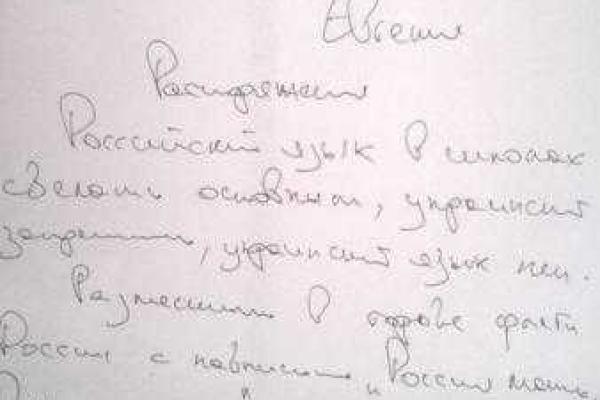 Евгения
Распоряжения
Российский язык в школах
сделать основным, украинский
запретить, украинский язык
Разместить в городе флаги
России с надписями "Россия мать